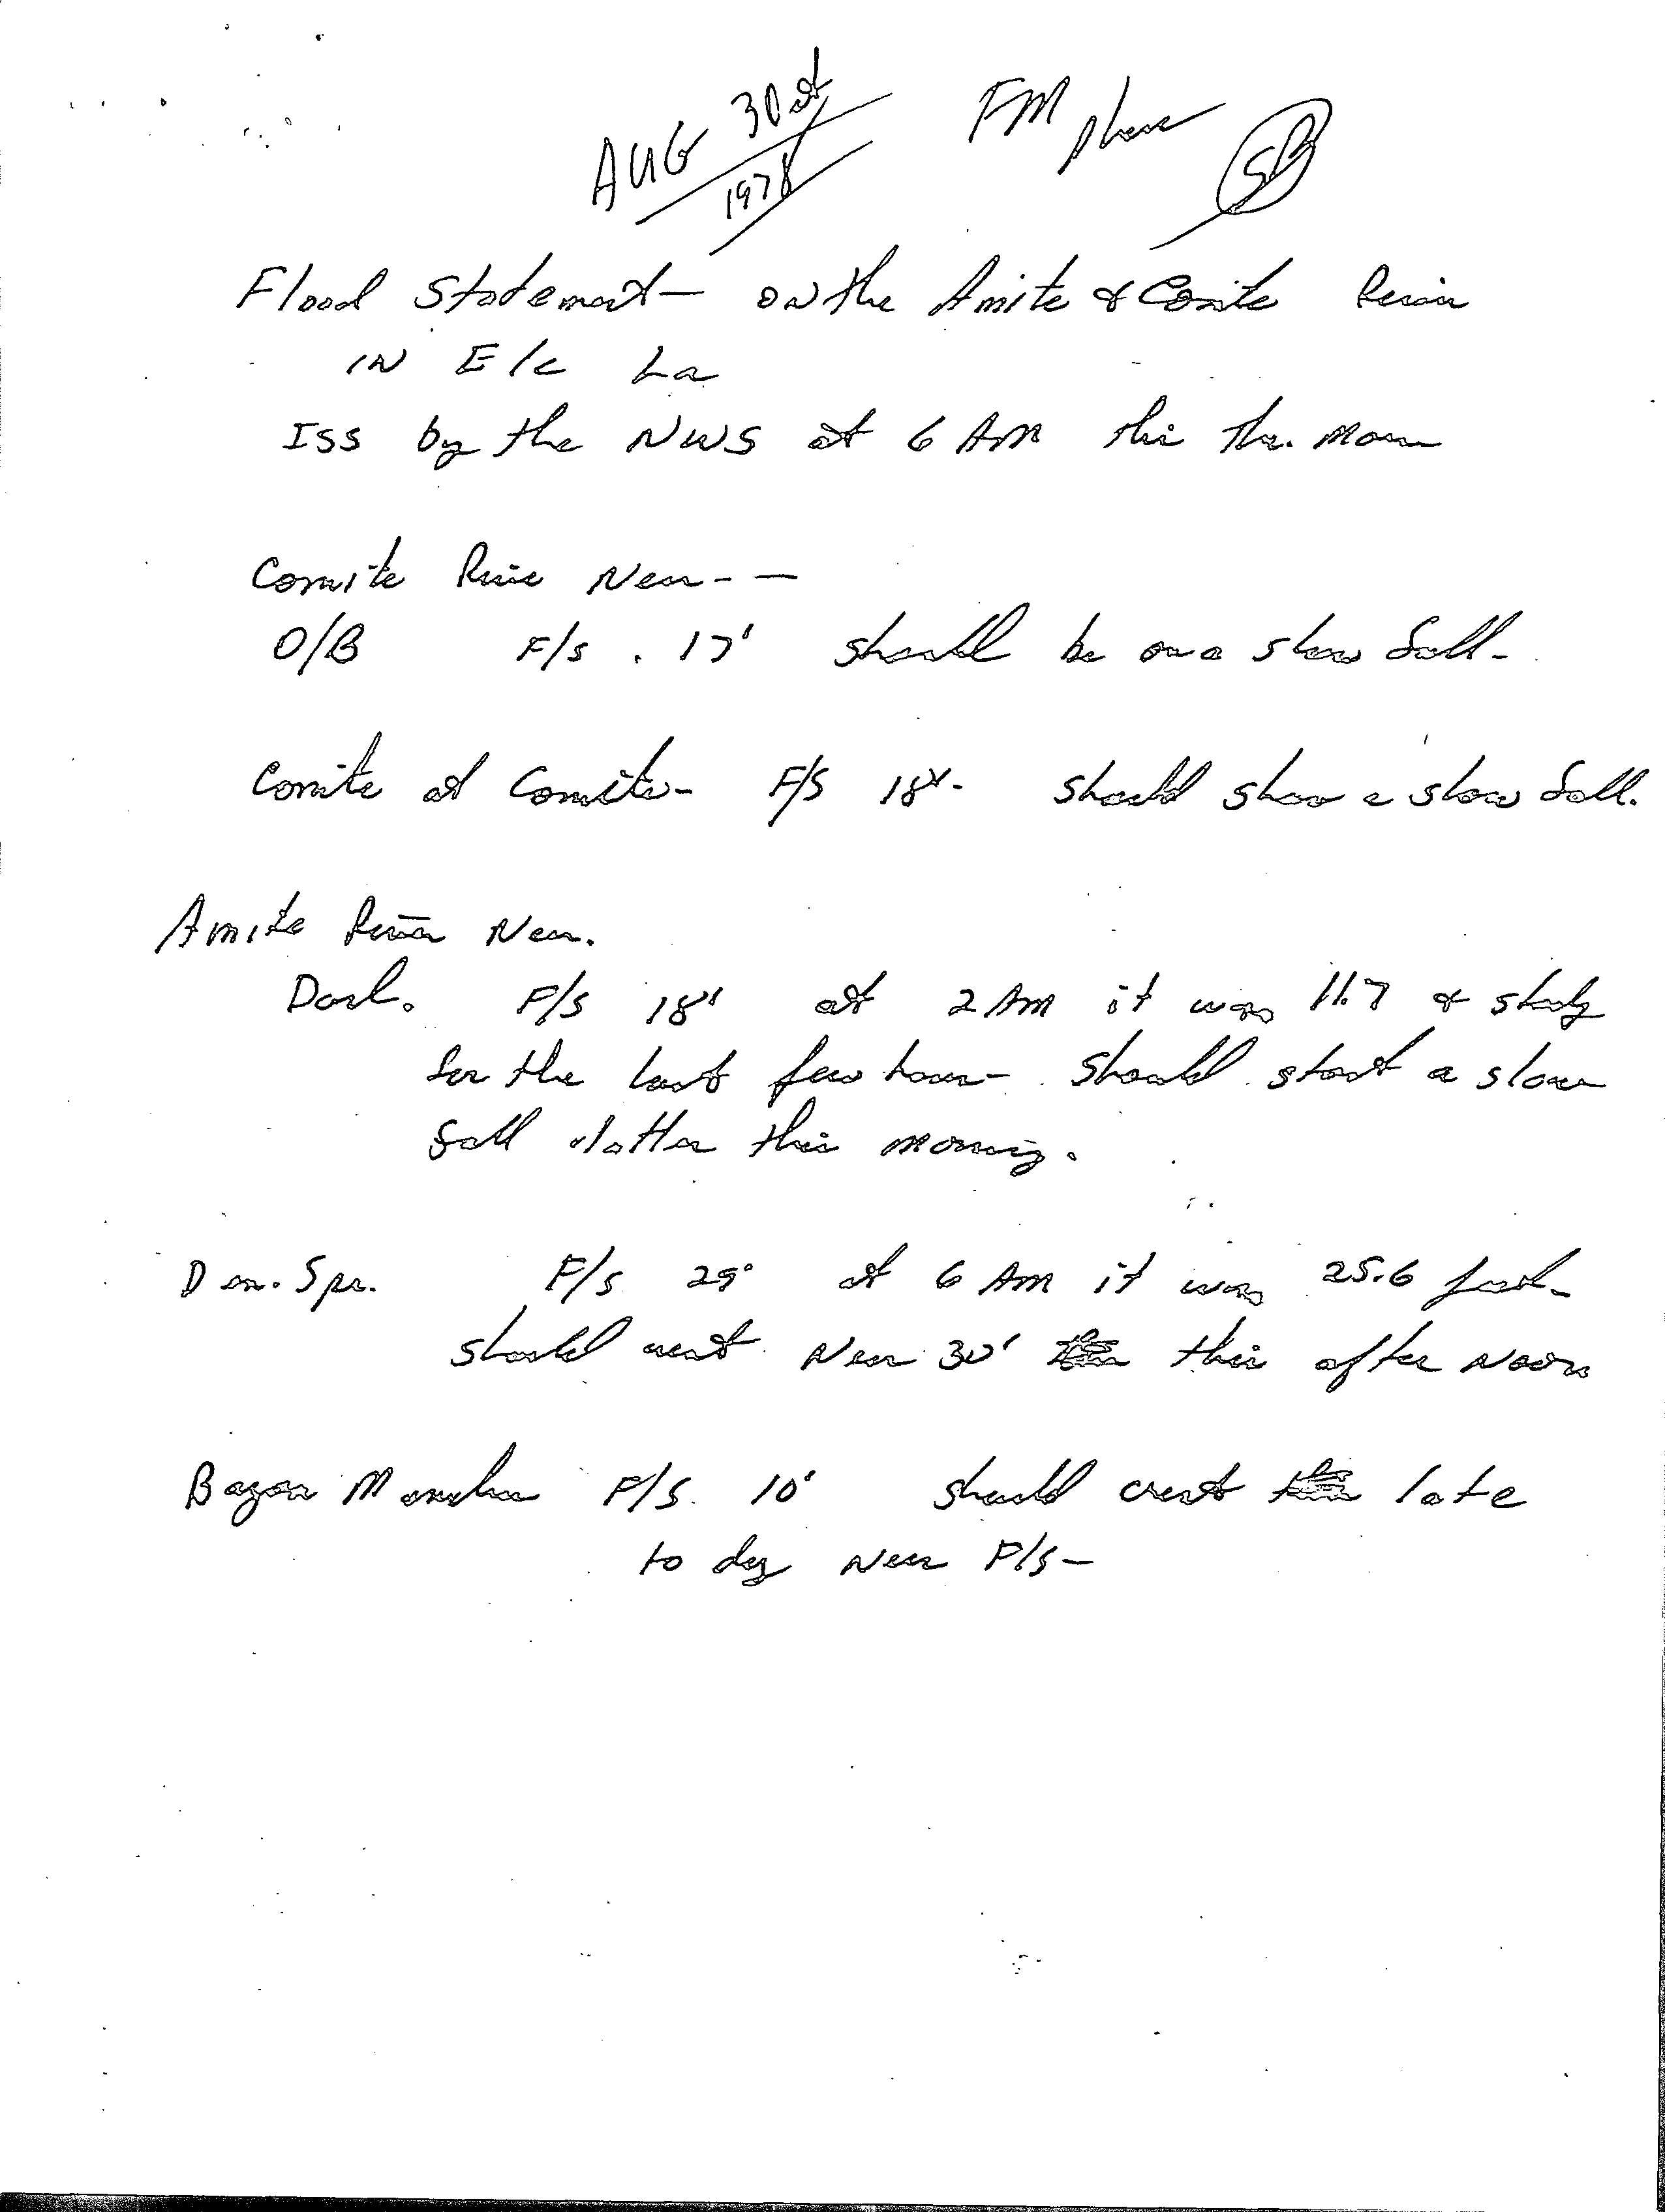 AUG 30th
1978
FM phone
SB
Flood Statement - on the Amite & Comite River
IN E/C La
ISS by the NWS at 6 AM this Thr. Morn
Comite River Near - -
O/B F/S . 17' should be on a slow fall -
Comite at Comite - F/S 18' - should show a slow fall.
Amite River Near.
Darl. F/S 18' at 2 AM it was 11.7 & study
for the last few hours - should start a slow
fall latter this morning.
Den. Spr. F/S 29' at 6 AM it was 25.6 feet -
should crest Near 30' this after Noon
Bayou Manchac F/S. 10' should crest late
to day Near F/S -